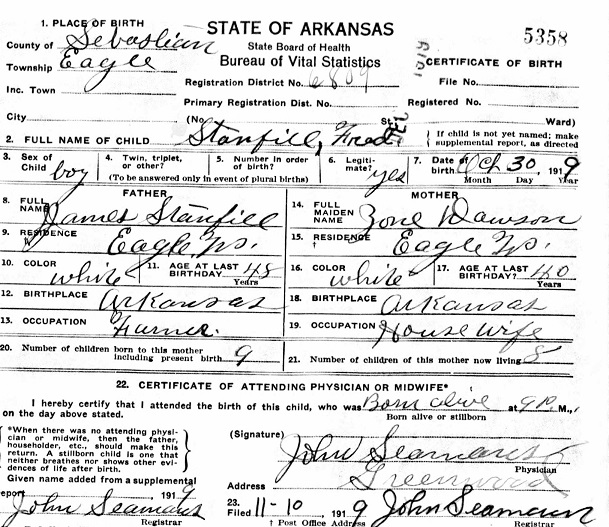 1. PLACE OF BIRTH
STATE OF ARKANSAS
5358
County of Sebastian
State Board of Health
1919
Township Eagle
Bureau of Vital Statistics
CERTIFICATE OF BIRTH
Inc. Town
Registration District No. 6809
File No.
Primary Registration Dist. No.
Registered No.
City (No. St. Ward)
2. FULL NAME OF CHILD Stanfill, Fred
{ If child is not yet named; make supplemental report, as directed
3. Sex of Child boy
4. Twin, triplet, or other?
5. Number in order of birth?
(To be answered only in event of plural births)
6. Legitimate? yes
7. Date of birth Oct 30, 1919
Month Day Year
FATHER
8. FULL NAME James Stanfill
9. RESIDENCE Eagle
10. COLOR white
11. AGE AT LAST BIRTHDAY 48
Years
12. BIRTHPLACE Arkansas
13. OCCUPATION Farmer.
MOTHER
14. FULL MAIDEN NAME Zone Dawson
15. RESIDENCE Eagle
†
16. COLOR white
17. AGE AT LAST BIRTHDAY? 40
Years
18. BIRTHPLACE Arkansas
19. OCCUPATION House wife
20. Number of children born to this mother including present birth 9
21. Number of children of this mother now living 8
22. CERTIFICATE OF ATTENDING PHYSICIAN OR MIDWIFE*
I hereby certify that I attended the birth of this child, who was Born alive at 9 P. M.,
Born alive or stillborn
on the day above stated.
*When there was no attending physi-
cian or midwife, then the father,
householder, etc., should make this
return. A stillborn child is one that
neither breathes nor shows other evi-
dences of life after birth.
(Signature) John Seamans
Physician
Address Greenwood
Given name added from a supplemental
report 191
John Seamans
Registrar
23.
Filed 11-10, 1919 John Seamans
† Post Office Address Registrar